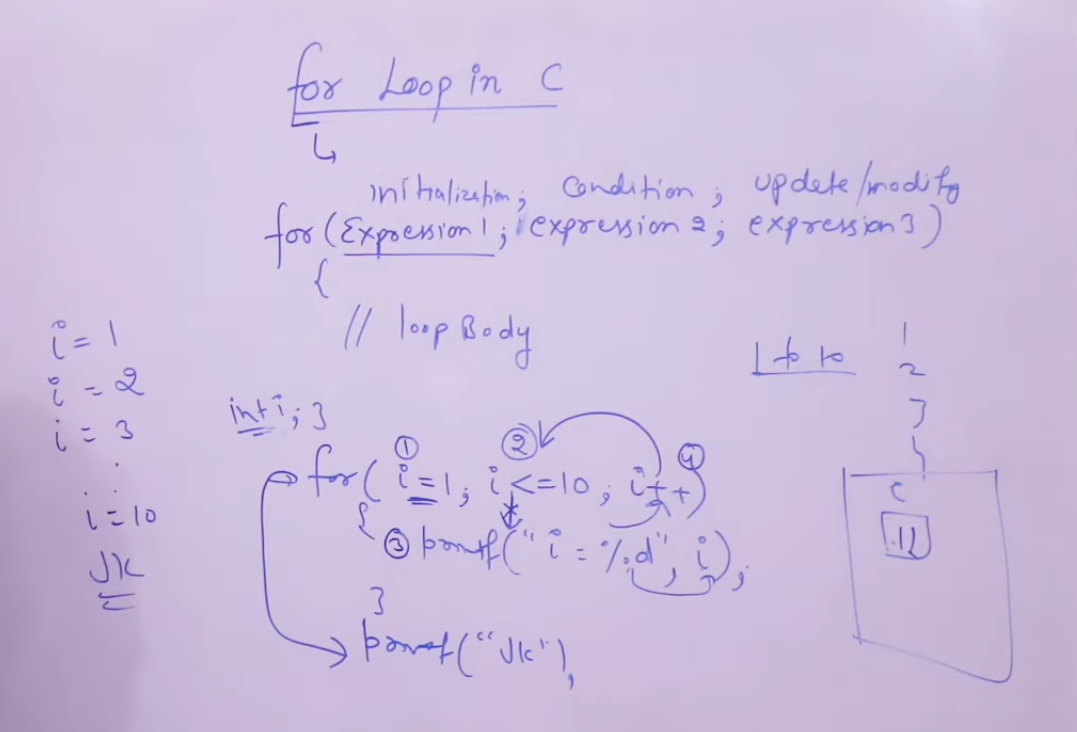 for Loop in C
initialization; Condition; update/modify
for (Expression 1; expression 2; expression 3)
{
// loop Body
i = 1
i = 2
i = 3
.
.
i = 10
JK
1 to 10
1
2
3
int i; 3
① ② ④
for( i=1; i<=10; i++)
{
③ printf(" i = %d", i);
}
printf("JK");